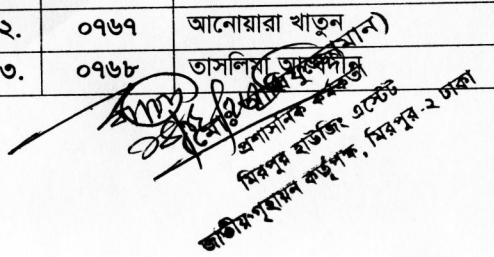 ২. ০৭৬৭ আনোয়ারা খাতুন
৩. ০৭৬৮ তাসলিমা
প্রশাসনিক কর্মকর্তা
মিরপুর হাউজিং এস্টেট
জাতীয় গৃহায়ন কর্তৃপক্ষ, মিরপুর-২ ঢাকা